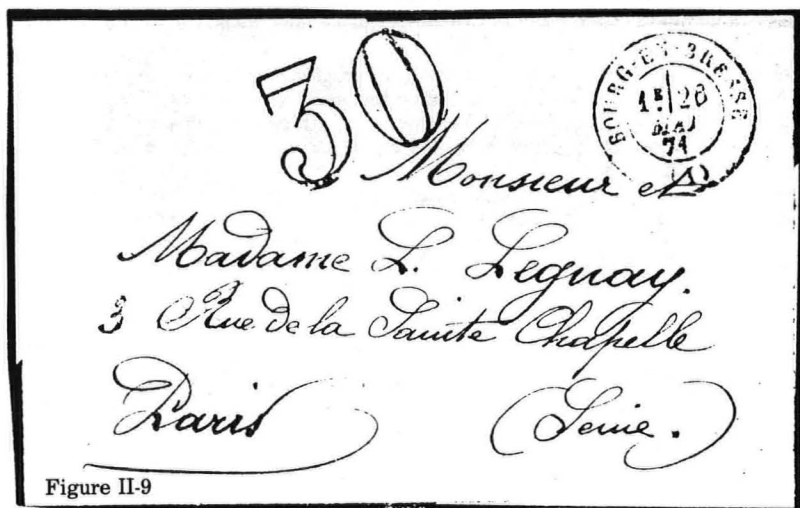 30
BOURG-EN-BRESSE
1E 26
MAI
71
(1)
Monsieur et
Madame L. Legnay.
3 Rue de la Sainte Chapelle
Paris (Seine.)
Figure II-9